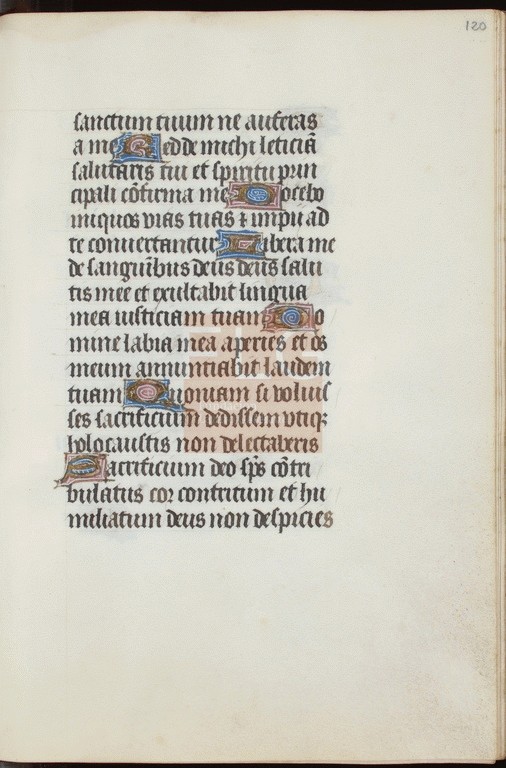 120
sanctum tuum ne auferas
a me Redde michi leticiā
salutaris tui et spiritu prin
cipali cōfirma me Docebo
iniquos vias tuas ⁊ impii ad
te conuertantur Libera me
de sanguinibus deus deus salu
tis mee et exultabit lingua
mea iusticiam tuam Do
mine labia mea aperies et os
meum annunciabit laudem
tuam Quoniam si voluis
ses sacrificium dedissem vtiqꝫ
holocaustis non delectaberis
Sacrificium deo sp̄s cōtri
bulatus cor contritum et hu
miliatum deus non despicies